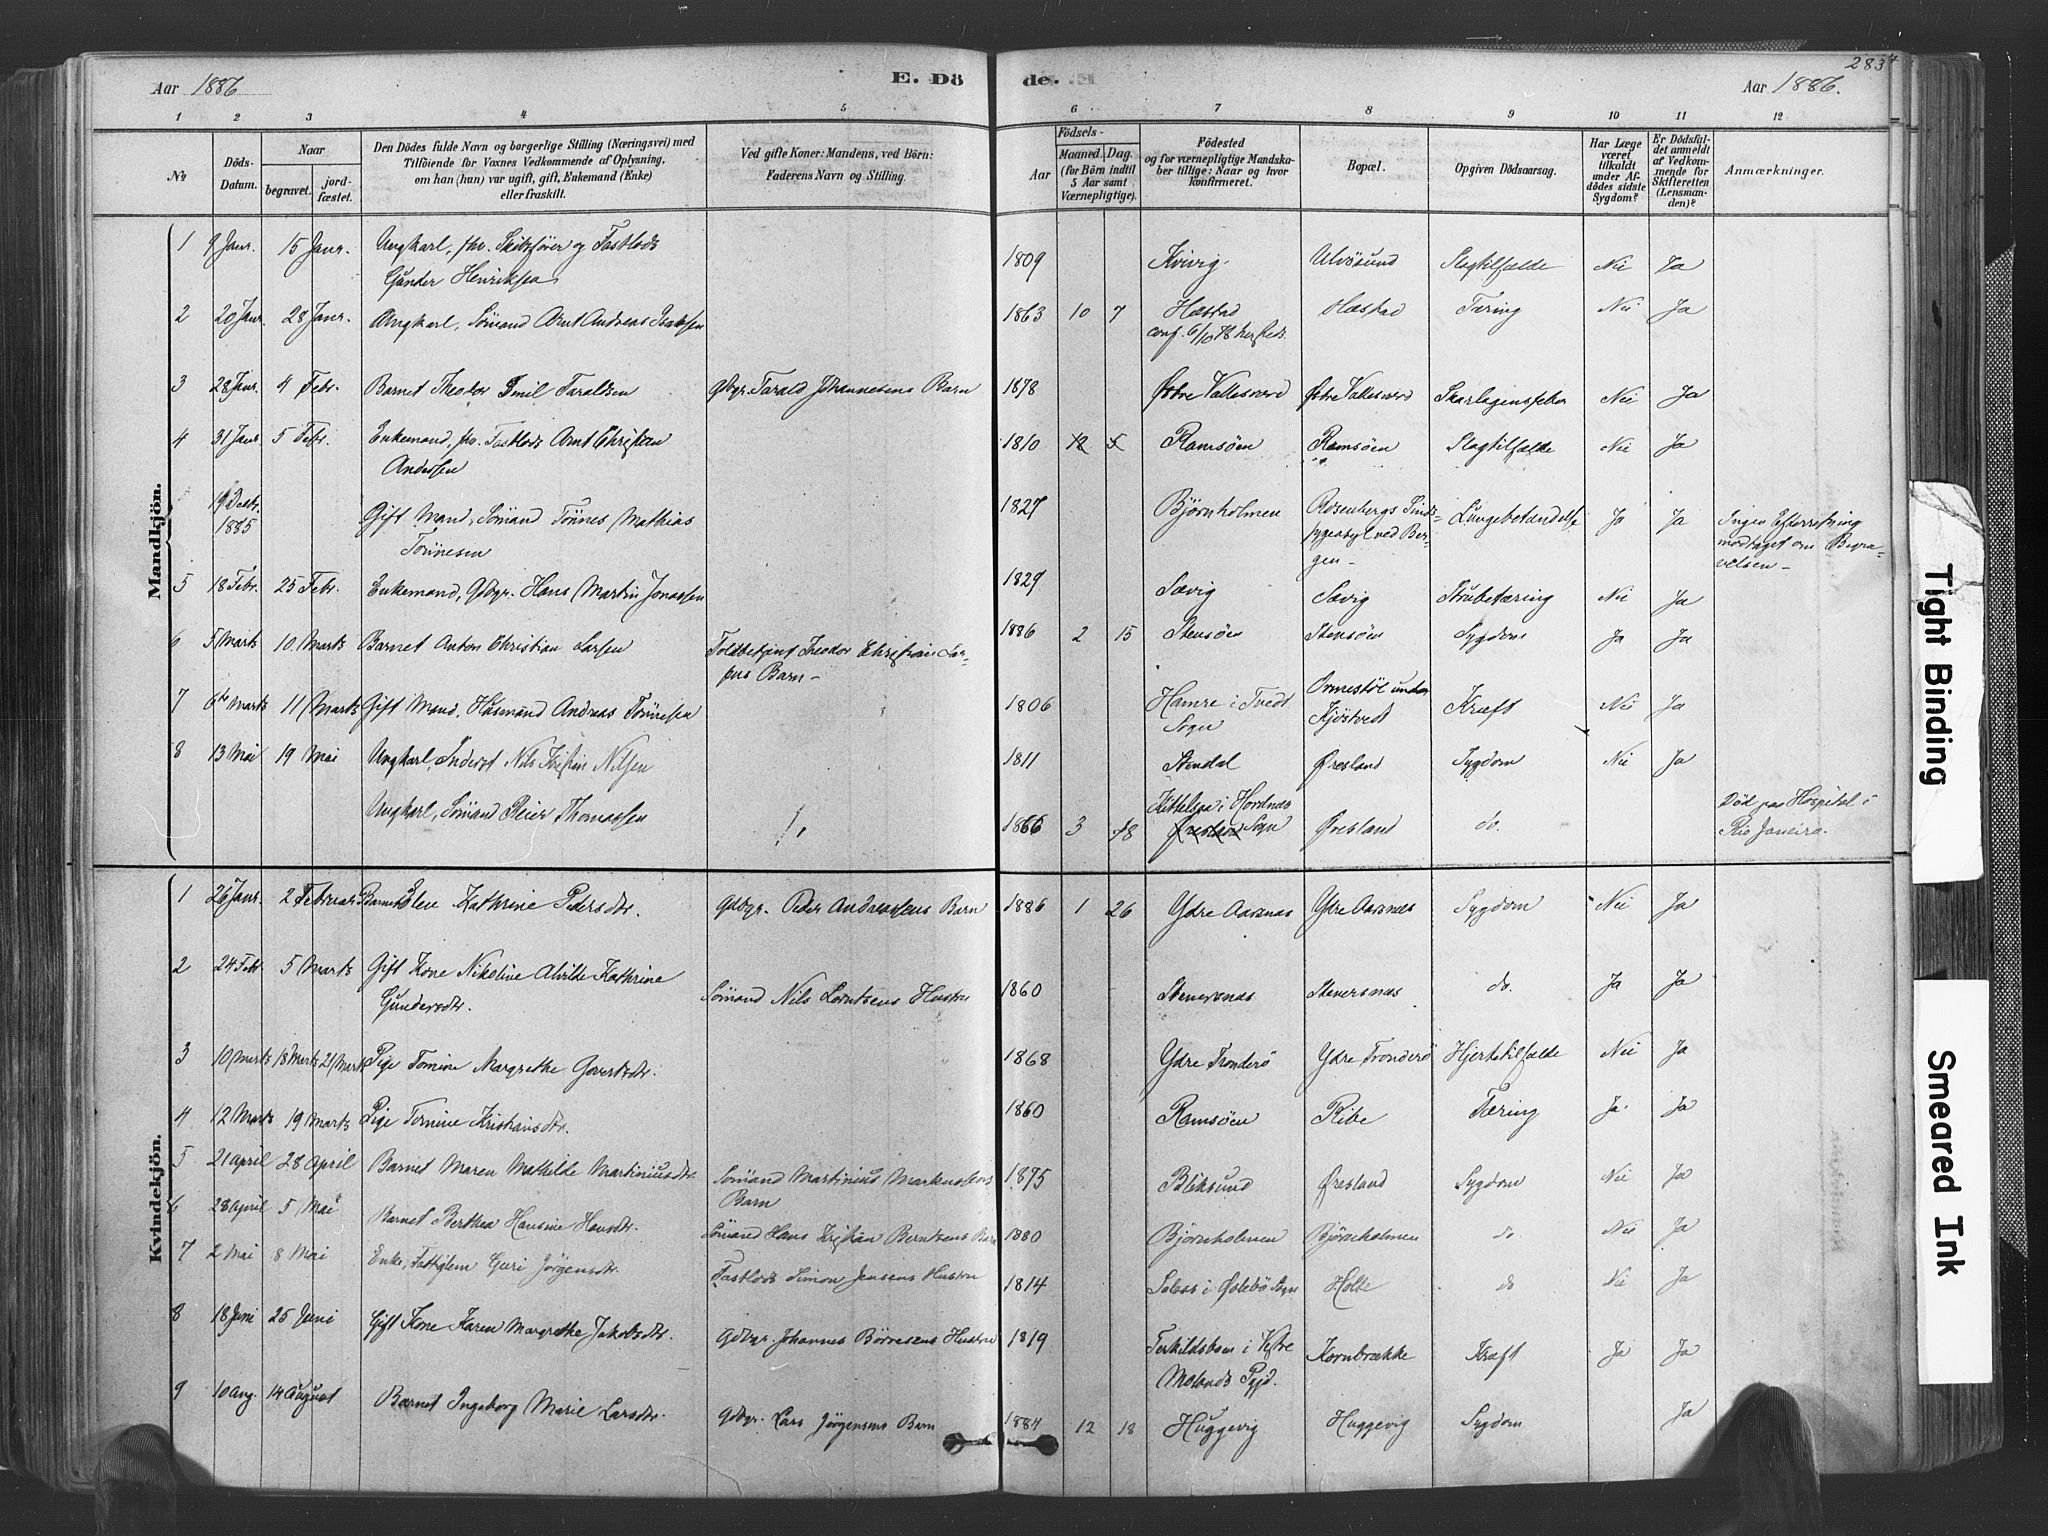 283
Aar 1886
E. Dö
de.
Aar 1886.
1 2 3 4 5 6 7 8 9 10 11 12
№
Döds-
Datum.
Naar
begravet.
jord-
fæstet.
Den Dödes fulde Navn og borgerlige Stilling (Næringsvei) med
Tilföiende for Voxnes Vedkommende af Oplysning,
om han (hun) var ugift, gift, Enkemand (Enke)
eller fraskilt.
Ved gifte Koner: Mandens, ved Börn:
Faderens Navn og Stilling.
Födsels-
Aar
Maaned. Dag.
(for Börn indtil
5 Aar samt
Værnepligtige).
Födested
og for værnepligtige Mandska-
ber tillige: Naar og hvor
konfirmeret.
Bopæl.
Opgiven Dödsaarsag.
Har Læge
været
tilkaldt
under Af-
dödes sidste
Sygdom?
Er Dödsfal-
det anmeldt
af Vedkom-
mende for
Skifteretten
(Lensman-
den)?
Anmærkninger.
Mandkjön.
1 9 Janr. 15 Janr. Ungkarl, fhv. Skibsfører og Fastlods 1809 Kvivig Ulvøsund Slagtilfælde Nei Ja
Gunder Henriksen
2 20 Janr. 28 Janr. Ungkarl, Sømand Arnt Andreas Isaksen 1863 10 7 Hæstad Hæstad Tæring Nei Ja
conf. 6/10 78 her Steds.
3 28 Janr. 4 Febr. Barnet Theodor Emil Taraldsen Gdbgr. Tarald Johannesens Barn 1878 Østre Vallesværd Østre Vallesværd Skarlagensfeber Nei Ja
4 31 Janr. 5 Febr. Enkemand, fhv. Fastlods Arnt Christian 1810 12 5 Ramsøen Ramsøen Slagtilfælde Nei Ja
Andersen
19 Decbr.
1885 Gift Mand, Sømand Tønnes Mathias 1827 Bjørnholmen Rosenbergs Sinds- Lungebetændelse Ja Ja Ingen Efterretning
Tønnesen sygeasyl ved Ber- modtaget om Begra-
gen- velsen-
5 18 Febr. 25 Febr. Enkemand, Gdbgr. Hans Martin Jonassen 1829 Sævig Sævig Strubetæring Nei Ja
6 5 Marts 10 Marts Barnet Anton Christian Larsen Toldbetjent Theodor Christian Lar- 1886 2 15 Stensøen Stensøen Sygdom Ja Ja
sens Barn-
7 6te Marts 11 Marts Gift Mand, Husmand Andreas Tønnesen 1806 Hamre i Tvedt Ormestøl under Kræft Nei Ja
Sogn Kjøstvedt
8 13 Mai 19 Mai Ungkarl, Inderst Nils Kristian Nilsen 1811 Stendal Øresland Sygdom Nei Ja
Ungkarl, Sømand Reier Thomassen 1866 3 18 Kittelsva i Hordnæs Øresland do. Død paa Hospital i
Øresland Sogn Rio Janeiro.
Kvindekjön.
1 26 Janr. 2 Februar Barnet Elen Kathrine Pedersdtr. Gdbgr. Peder Andreassens Barn 1886 1 26 Ydre Aarsnæs Ydre Aarsnæs Sygdom Nei Ja
2 24 Febr 5 Marts Gift Kone Nikoline Alvilde Kathrine Sømand Nils Lorntsens Hustru 1860 Stenersnæs Stenersnæs do. Ja Ja
Gundersdtr.
3 10 Marts 18 Marts 21 Marts Pige Tomine Margrethe Govertsdtr. 1868 Ydre Tronderø Ydre Tronderø Hjertetilfælde Nei Ja
4 12 Marts 19 Marts Pige Tomine Kristiansdtr. 1860 Ramsøen Ribe Tæring Ja Ja
5 21 April 28 April Barnet Maren Mathilde Martiniusdtr. Sømand Martinius Markussens 1875 Bleksund Øresland Sygdom Nei Ja
Barn
6 28 April 5 Mai Barnet Berthea Hansine Hansdtr. Sømand Hans Kristian Berntsens Barn 1880 Bjørnholmen Bjørnholmen do Nei Ja
7 2 Mai 8 Mai Enke, Fattiglem Guri Jørgensdtr. Fastlods Simon Jensens Hustru 1814 i Øslebø Sogn Holte do Nei Ja
8 18 Juni 25 Juni Gift Kone Karen Margrethe Jakobsdtr. Gdbgr. Johannes Børresens Hustru 1819 Terkildsboen i Vestre Kornbrække Kræft Ja Ja
Molands Pgjd.
9 10 Aug. 14 August Barnet Ingeborg Marie Larsdtr. Gdbgr. Lars Jørgensens Barn 1884 12 18 Huggevig Huggevig Sygdom Ja
Tight Binding
Smeared Ink